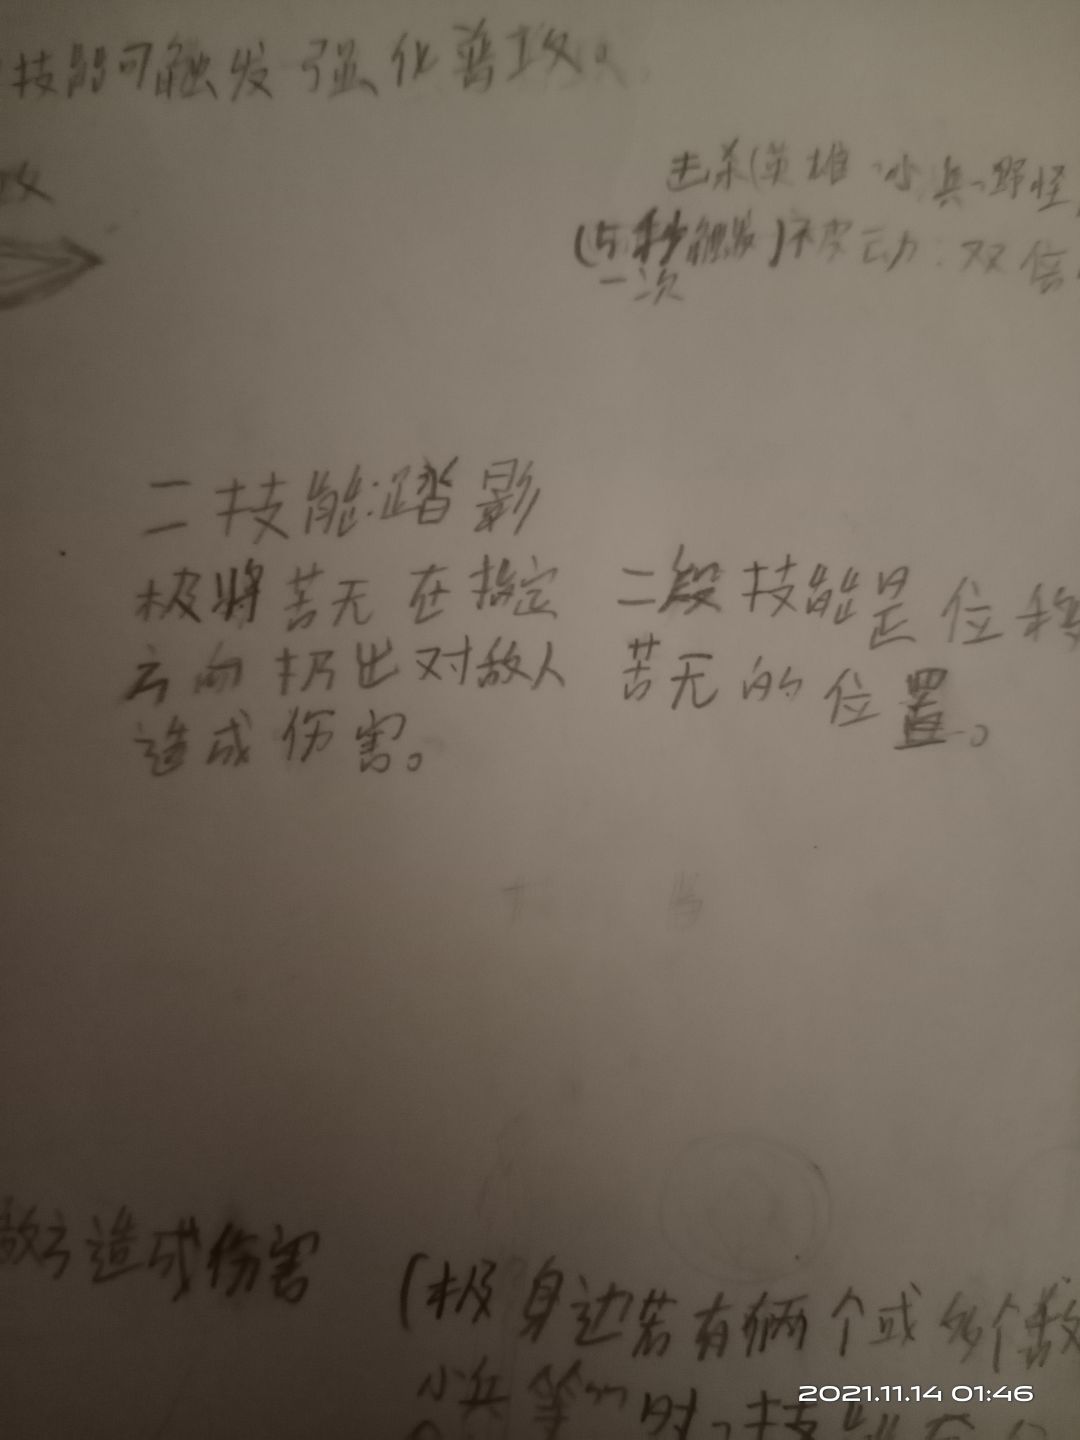 技能可触发强化普攻。
攻
击杀(英雄、小兵、野怪
(5秒触发)被动:双倍
一次
二技能:踏影
极将苦无在指定
方向扔出对敌人
造成伤害。
二段技能是位移
苦无的位置。
敌方造成伤害
(极身边若有俩个或多个敌
小兵等)时,技能
2021.11.14 01:46